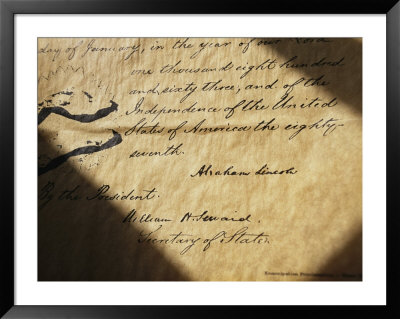 day of January, in the year of our Lord
one thousand eight hundred
and sixty three, and of the
Independence of the United
States of America the eighty-
seventh.
Abraham Lincoln
By the President.
William H. Seward.
Secretary of State.
Emancipation Proclamation